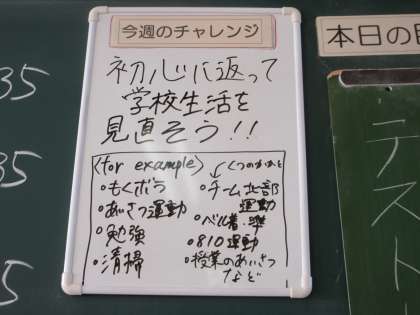 今週のチャレンジ
初心に返って
学校生活を
見直そう!!
(for example)
・もくボラ
・あいさつ運動
・勉強
・清掃
くつのかかと
・チーム北部
運動
・ベル着・準
・810運動
・授業のあいさつ
など
本日の
テスト
35
35
5